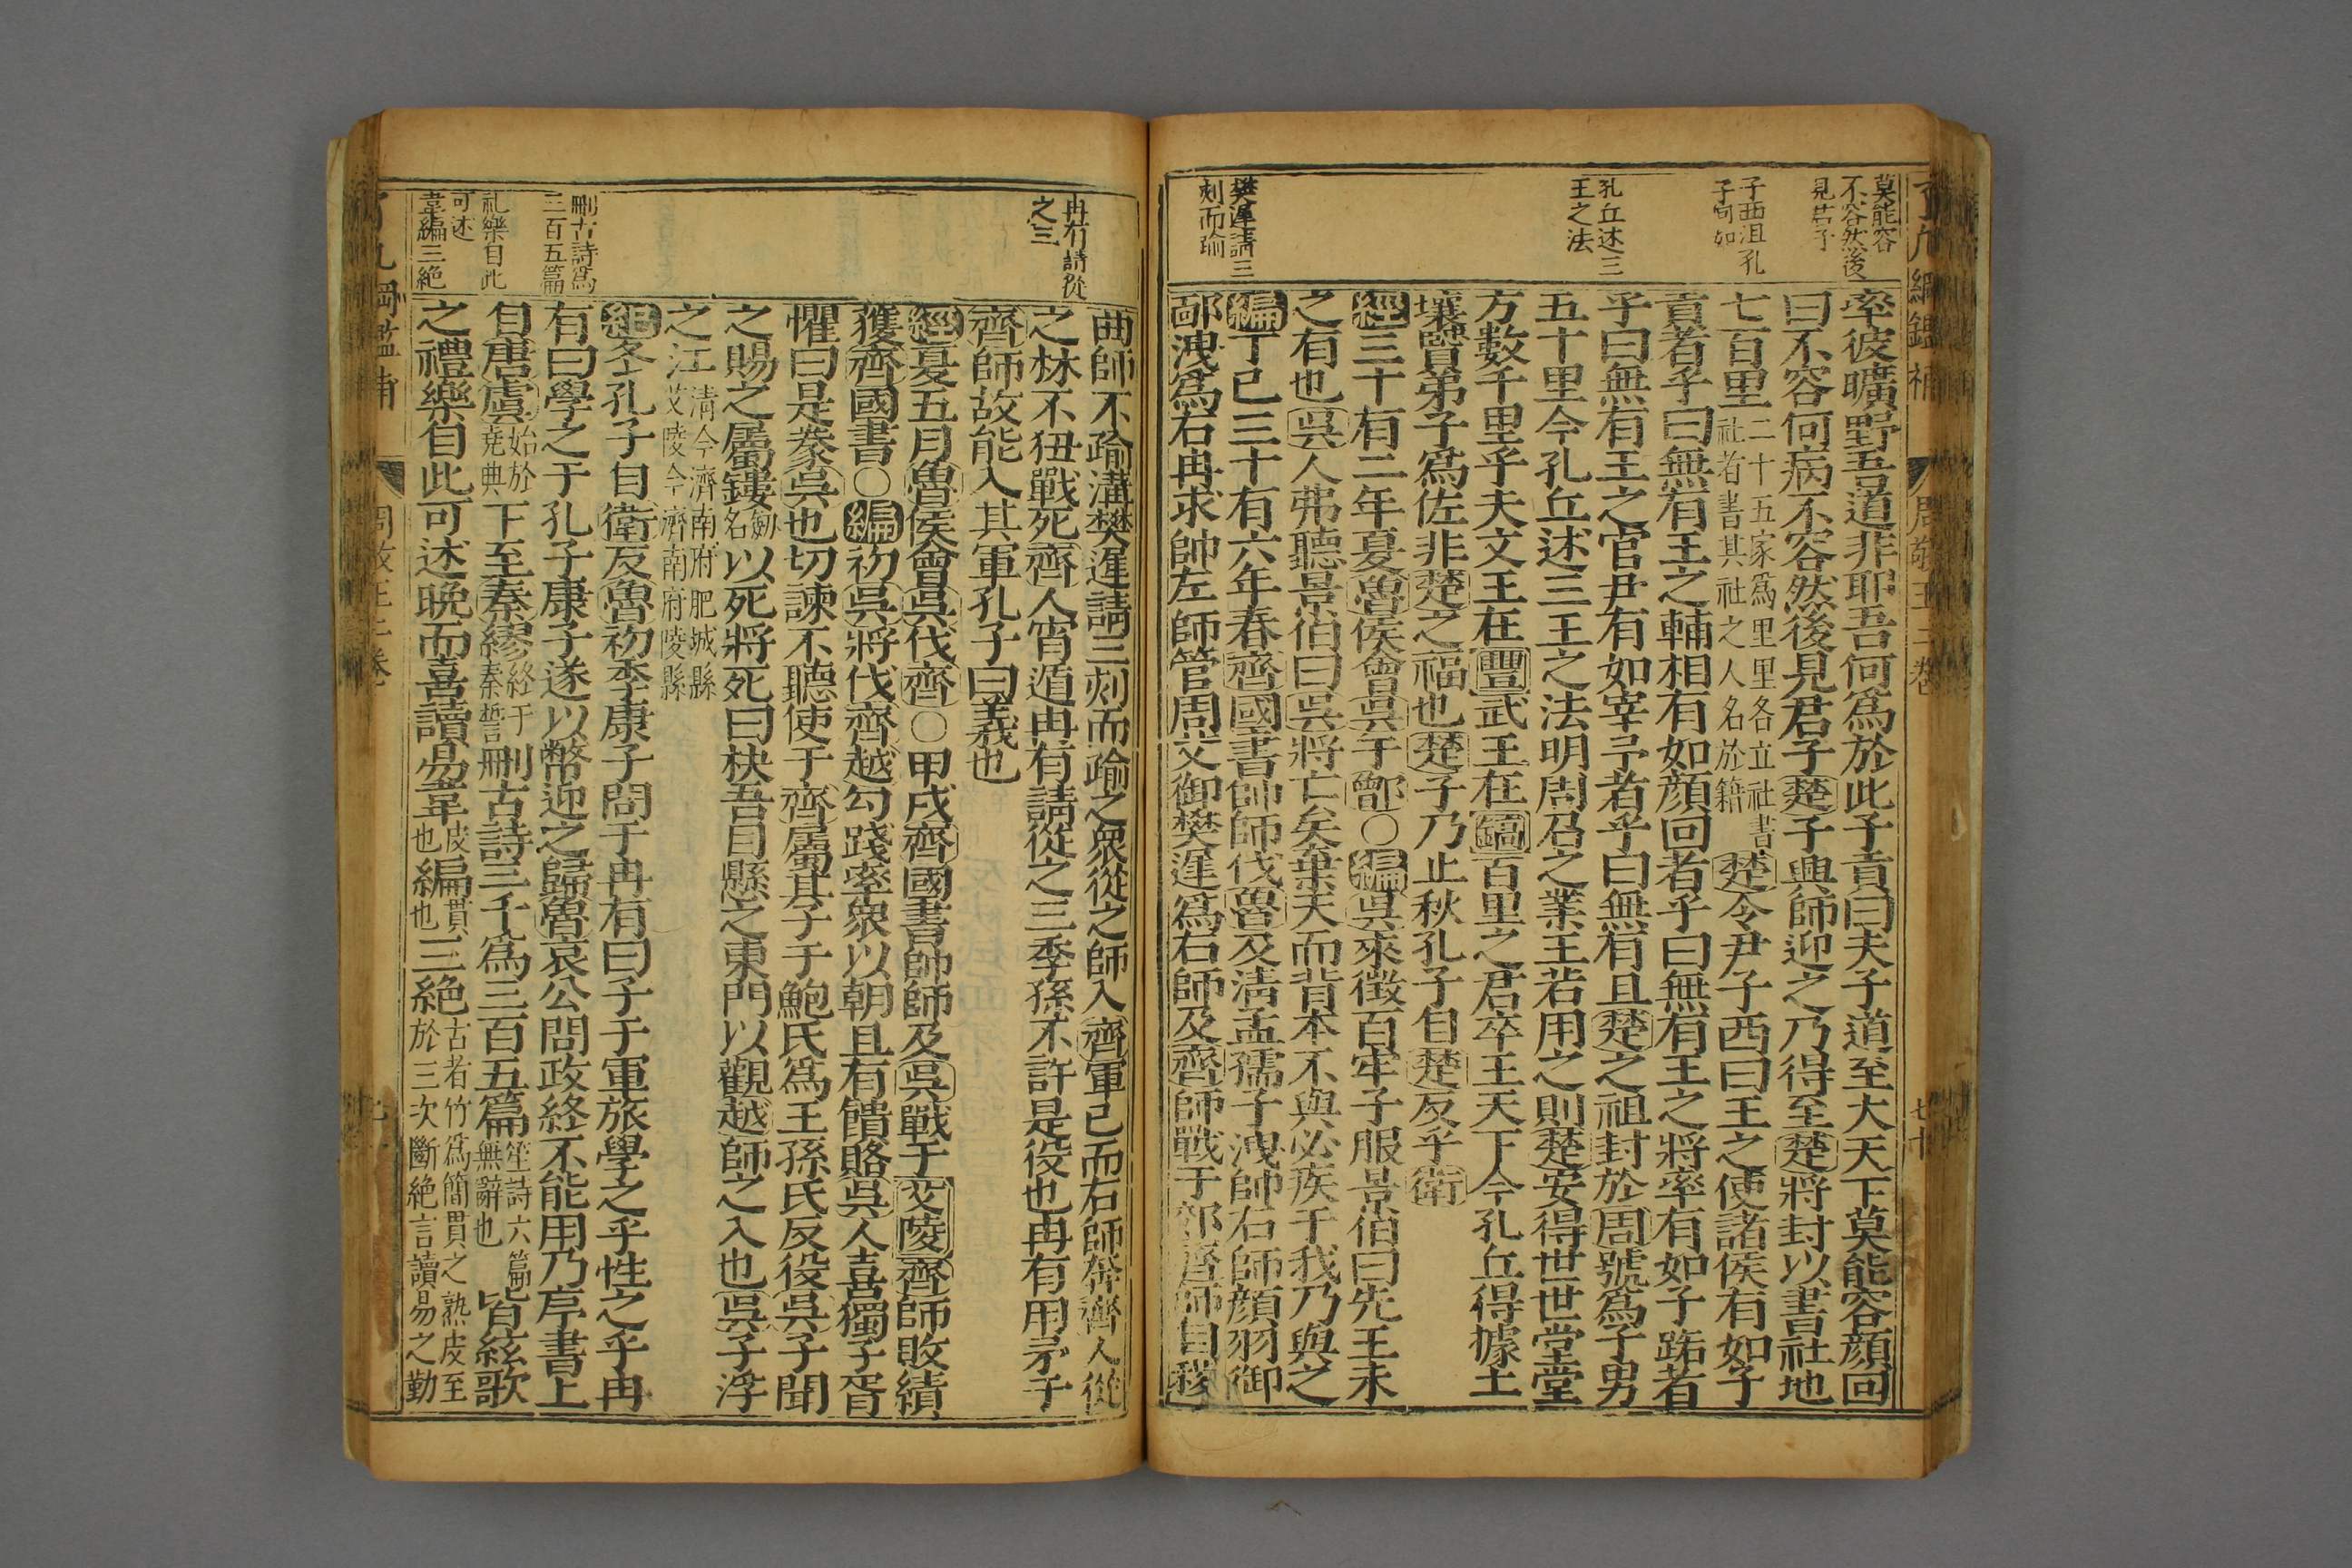 了凡綱鑑補
周敬王二卷
七十
莫能容
不容然後
見君子
子西沮孔
子何如
孔丘述三
王之法
樊遲請三
刻而踰
率彼曠野吾道非耶吾何為於此子貢曰夫子道至大天下莫能容顏回
曰不容何病不容然後見君子楚子興師迎之乃得至楚將封以書社地
七百里二十五家為里里各立社書社者書其社之人名於籍楚令尹子西曰王之使諸侯有如子
貢者乎曰無有王之輔相有如顏回者乎曰無有王之將率有如子路者
乎曰無有王之官尹有如宰予者乎曰無有且楚之祖封於周號為子男
五十里今孔丘述三王之法明周召之業王若用之則楚安得世世堂堂
方數千里乎夫文王在豐武王在鎬百里之君卒王天下今孔丘得據土
壤賢弟子為佐非楚之福也楚子乃止秋孔子自楚反乎衛
經三十有二年夏魯侯會吳于鄫○編吳來徵百牢子服景伯曰先王未
之有也吳人弗聽景伯曰吳將亡矣棄天而背本不與必疾于我乃與之
編丁巳三十有六年春齊國書帥師伐魯及清孟孺子洩帥右師顏羽御
邴洩為右冉求帥左師管周父御樊遲為右師及齊師戰于郊齊師自稷
冉有請從
之三
刪古詩為
三百五篇
礼樂自此
可述
韋編三絕
曲師不踰溝樊遲請三刻而踰之衆從之師入齊軍已而右師奔齊人從
之林不狃戰死齊人宵遁冉有請從之三季孫不許是役也冉有用矛于
齊師故能入其軍孔子曰義也
經夏五月魯侯會吳伐齊○甲戌齊國書帥師及吳戰于艾陵齊師敗績
獲齊國書○編初吳將伐齊越勾踐率衆以朝且有饋賂吳人喜獨子胥
懼曰是豢吳也切諫不聽使于齊屬其子于鮑氏為王孫氏反役吳子聞
之賜之屬鏤劒名以死將死曰抉吾目懸之東門以觀越師之入也吳子浮
之江清今濟南府肥城縣艾陵今濟南府陵縣
紀冬孔子自衛反魯初季康子問于冉有曰子于軍旅學之乎性之乎冉
有曰學之于孔子康子遂以幣迎之歸魯哀公問政終不能用乃序書上
自唐虞始於堯典下至秦繆終于秦誓刪古詩三千為三百五篇笙詩六篇無辭也皆絃歌
之禮樂自此可述晩而喜讀易韋皮也編貫也三絕古者竹為簡貫之熟皮至於三次斷絕言讀易之勤